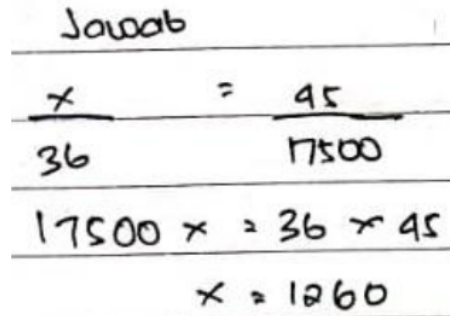 Jawab
x/36 = 45/17500
17500 x = 36 x 45
x = 1260